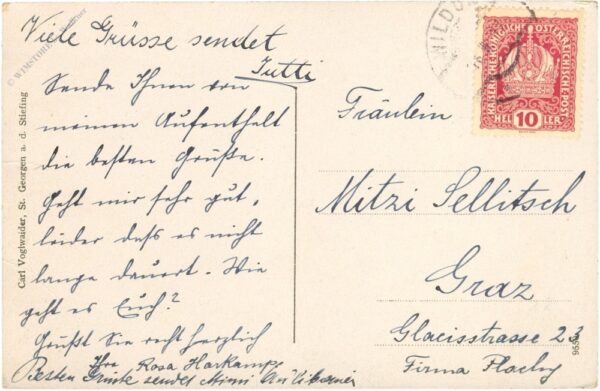 Viele Grüsse sendet
Tutti
Sende Ihnen von
meinem Aufenthalt
die besten Grüße.
Geht mir sehr gut,
leider daß es nicht
lange dauert. Wie
geht es Euch?
Grüßt Sie recht herzlich
Ihre Rosa Harkamp
Besten Grüße sendet
Carl Voglwaider, St. Georgen a. d. Stiefing
© WIMSTORE
WILDON
KAISERLICHE KÖNIGLICHE ÖSTERREICHISCHE POST
HEL 10 LER
Fräulein
Mitzi Sellitsch
Graz
Glacisstrasse 23
Firma Plachy